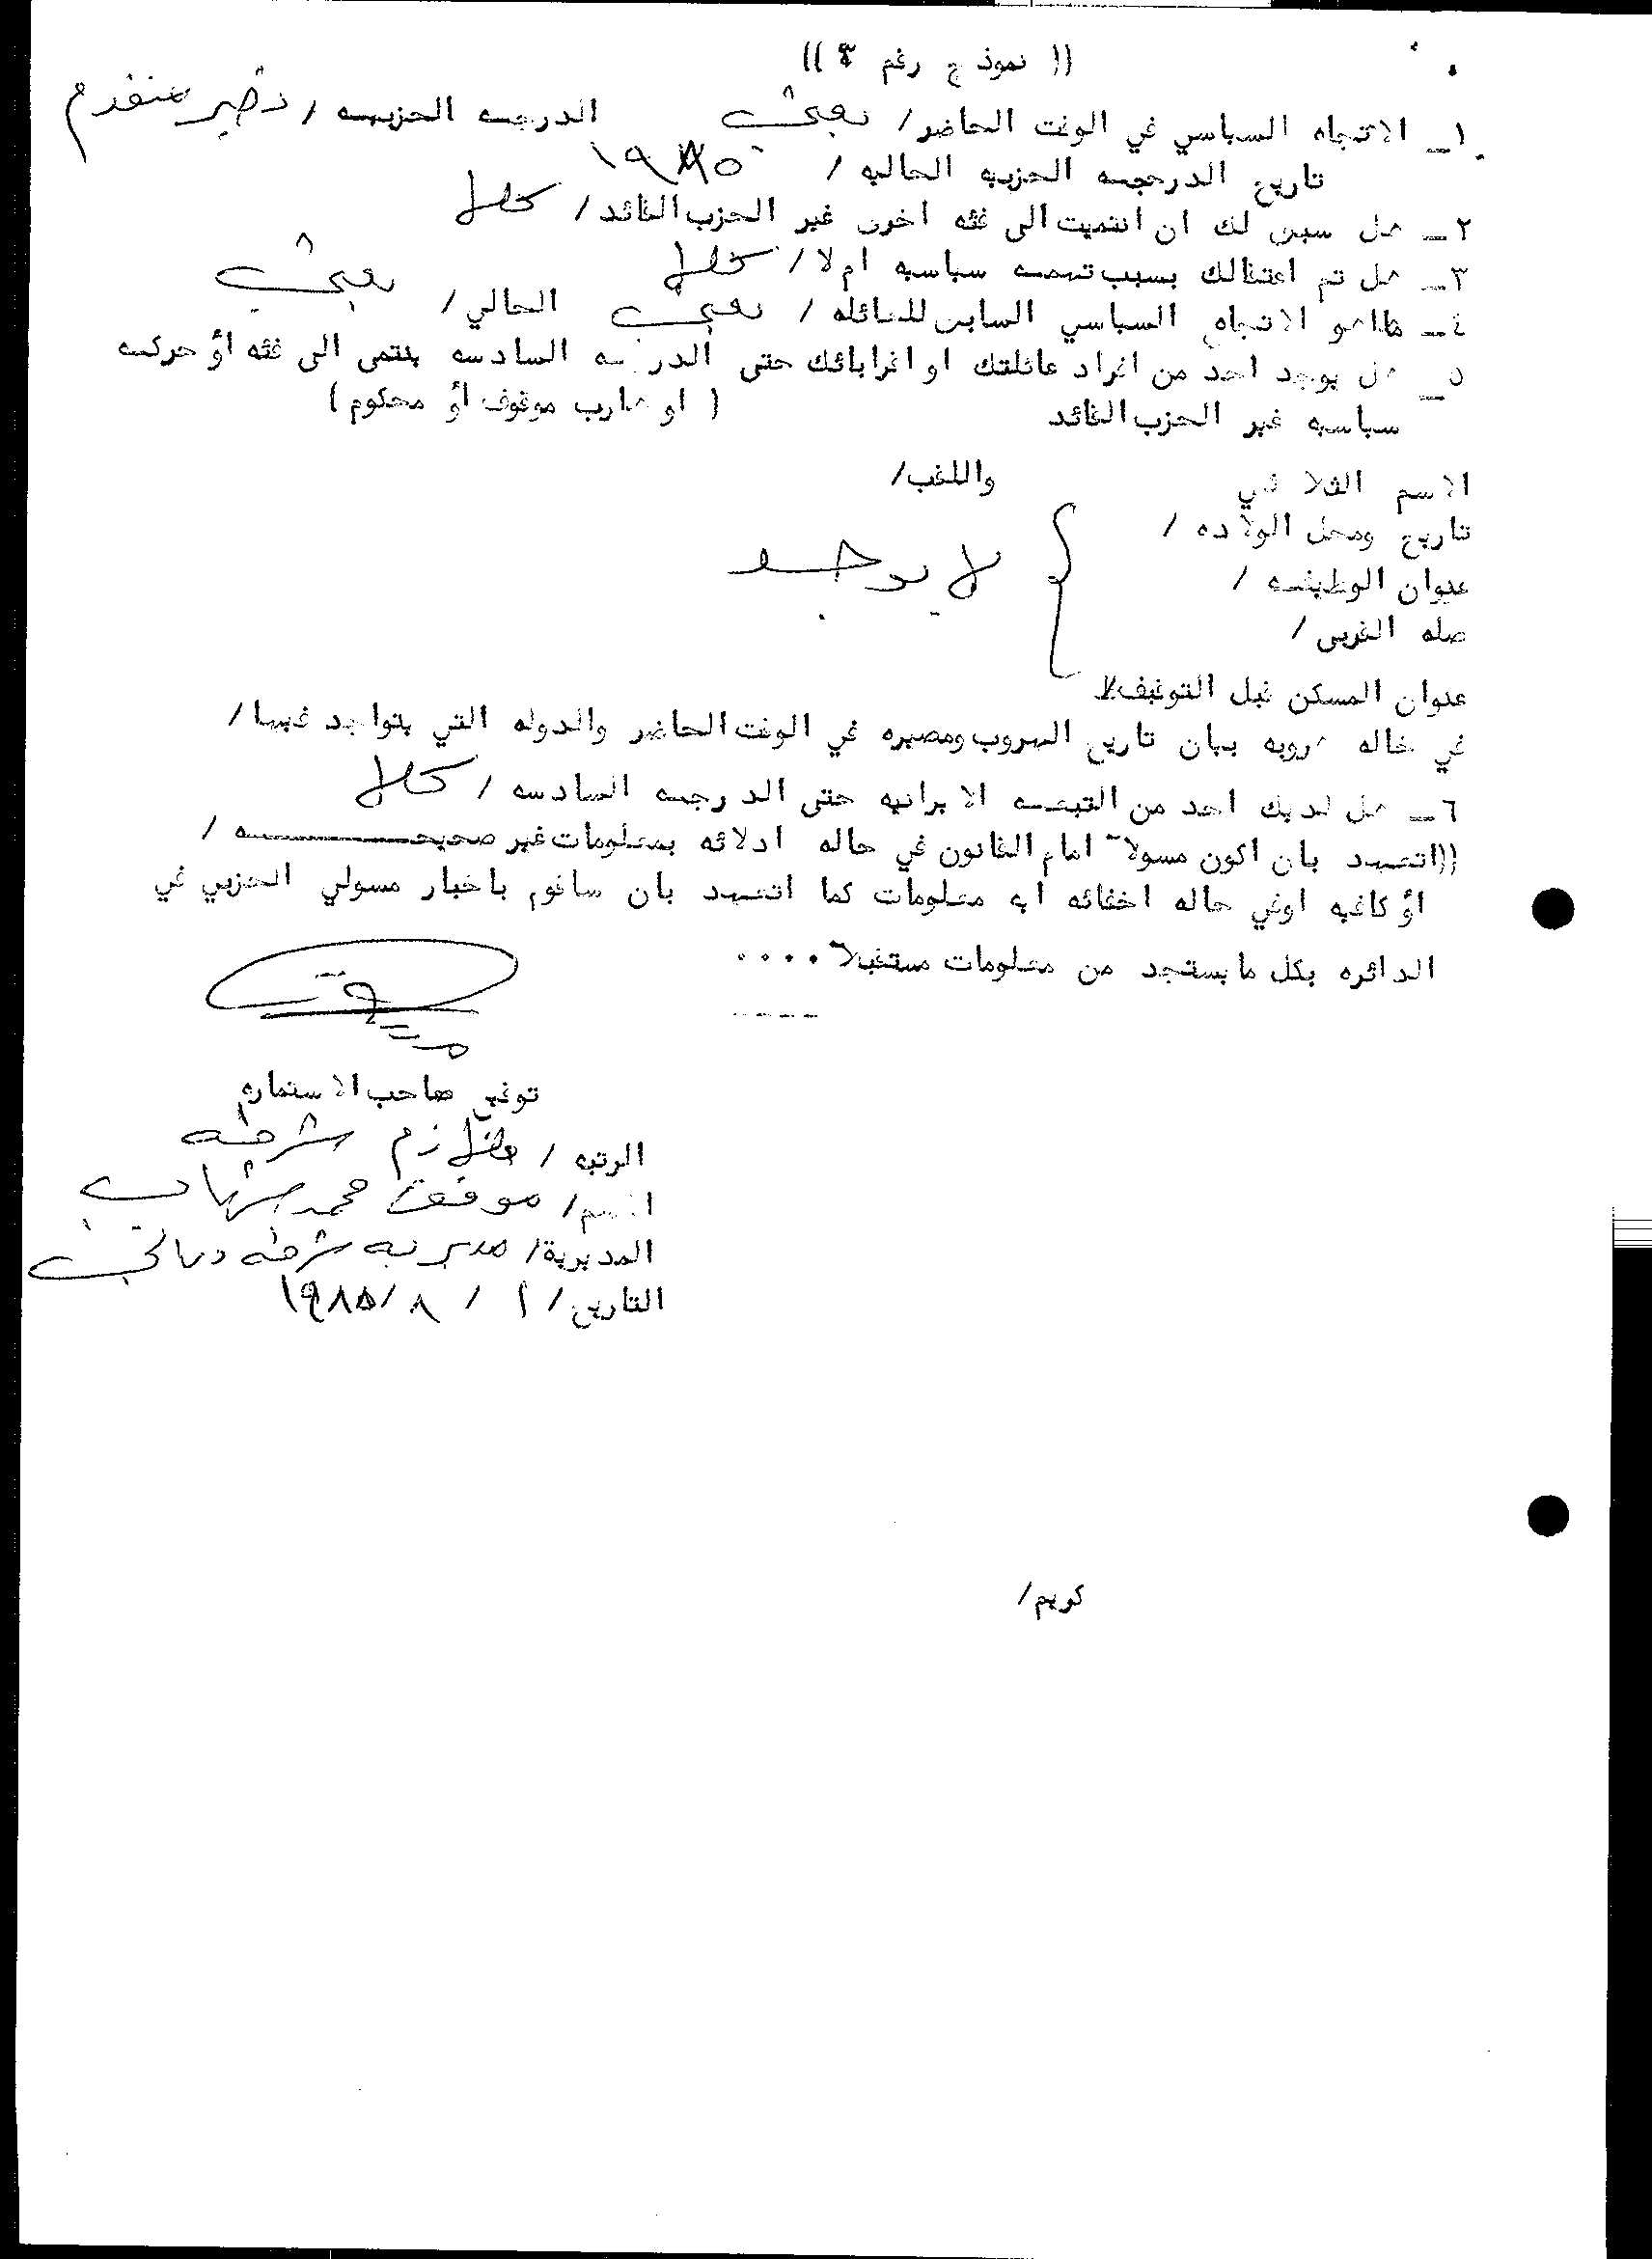 (( نموذج رقم ٣ ))
١ـ الاتجاه السياسي في الوقت الحاضر/ بعثي الدرجه الحزبيه / نصير متقدم
تاريخ الدرجه الحزبيه الحاليه / ١٩٨٥
٢ـ هل سبق لك ان انتميت الى فئه اخرى غير الحزب القائد/ كلا
٣ـ هل تم اعتقالك بسبب تهمه سياسيه ام لا/ كلا
٤ـ ماهو الاتجاه السياسي السابق للعائله / بعثي الحالي/ بعثي
٥ـ هل يوجد احد من افراد عائلتك او اقربائك حتى الدرجه السادسه ينتمي الى فئه أو حركه
سياسيه غير الحزب القائد ( او هارب موقوف أو محكوم )
الاسم الثلاثي واللقب/
تاريخ ومحل الولاده /
لا يوجد
عنوان الوظيفه /
صله القربى /
عنوان المسكن قبل التوقيف/
في حاله هروبه بيان تاريخ الهروب ومصيره في الوقت الحاضر والدوله التي يتواجد فيها/
٦ـ هل لديك احد من التبعه الايرانيه حتى الدرجه السادسه / كلا
((اتعهد بان اكون مسولاً امام القانون في حاله ادلائه بمعلومات غير صحيحه /
أو كاذبه اوفي حاله اخفائه ايه معلومات كما اتعهد بان ساقوم باخبار مسولي الحزبي في
الدائره بكل مايستجد من معلومات مستقبلاً ....
توقيع صاحب الاستماره
الرتبه / ملازم شرطه
الاسم/ موفق محمد شهاب
المديرية/ مديريه شرطه ديالى
التاريخ/ ١ / ٨ /١٩٨٥
كريم/